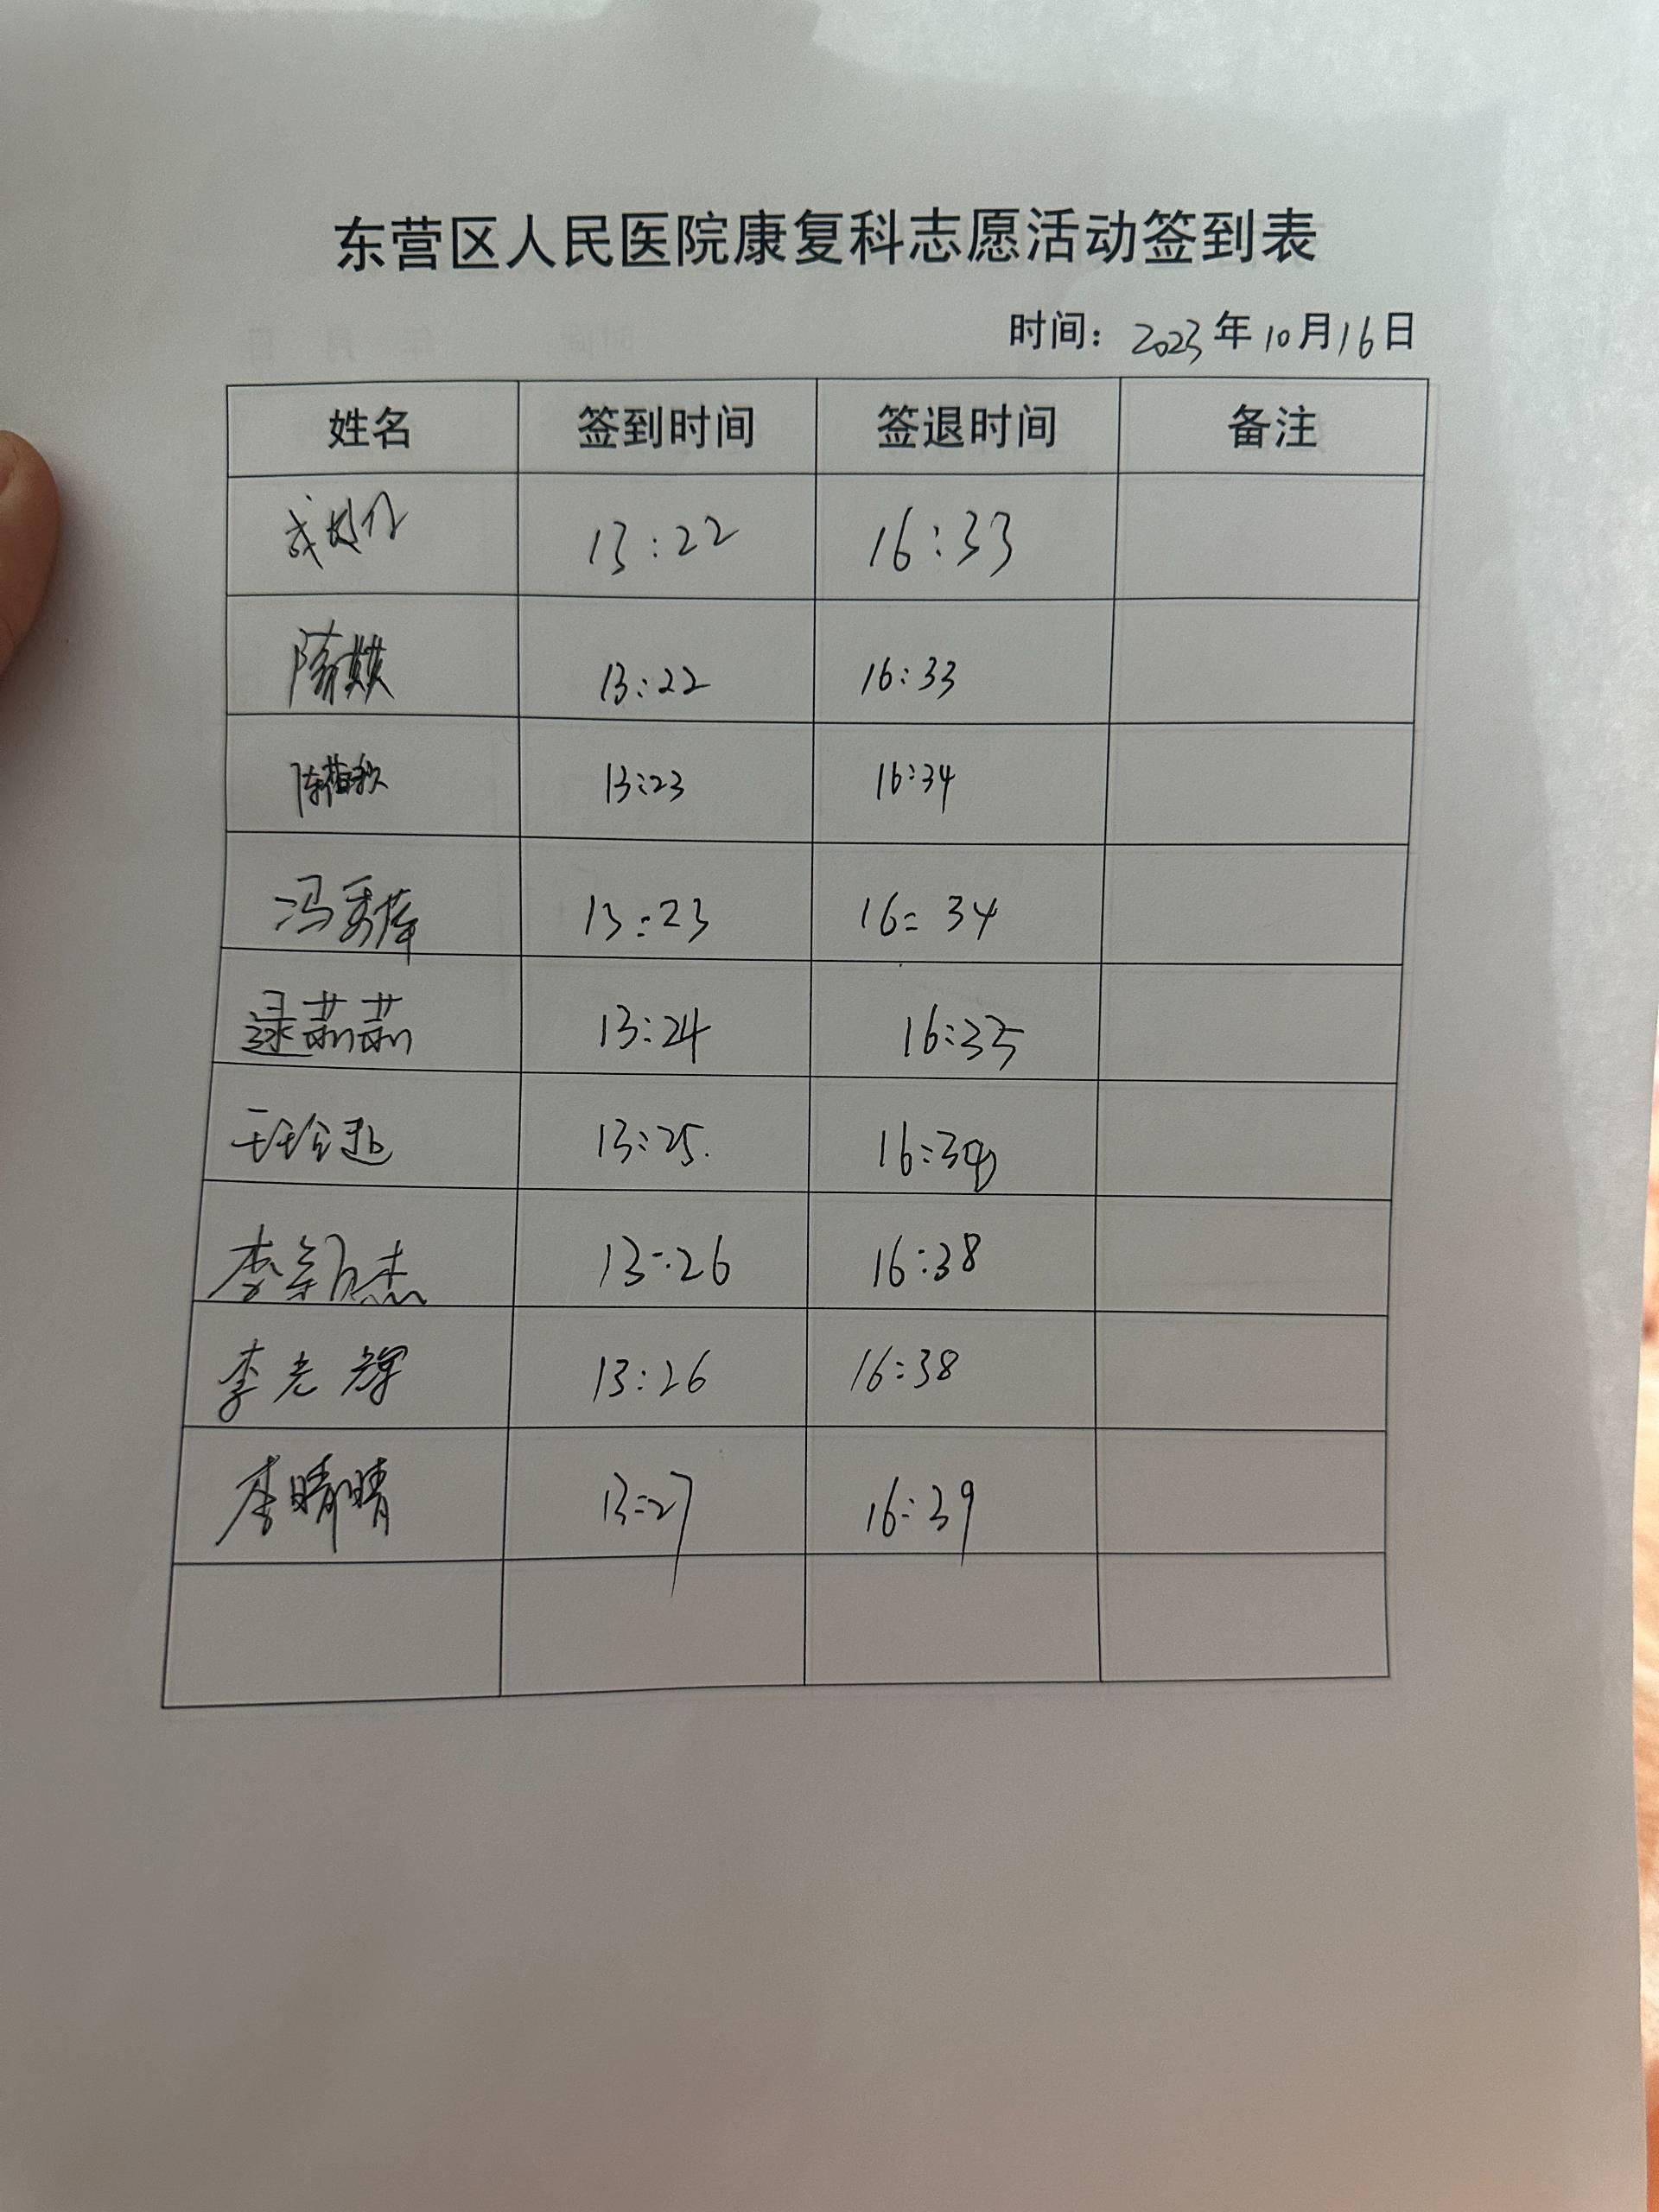 东营区人民医院康复科志愿活动签到表
时间：2023年10月16日
姓名 签到时间 签退时间 备注
13:22 16:33
13:22 16:33
陈 13:23 16:34
冯秀萍 13:23 16:34
逯莉莉 13:24 16:35
13:25. 16:38
李 杰 13:26 16:38
李光辉 13:26 16:38
李晴晴 13:27 16:39